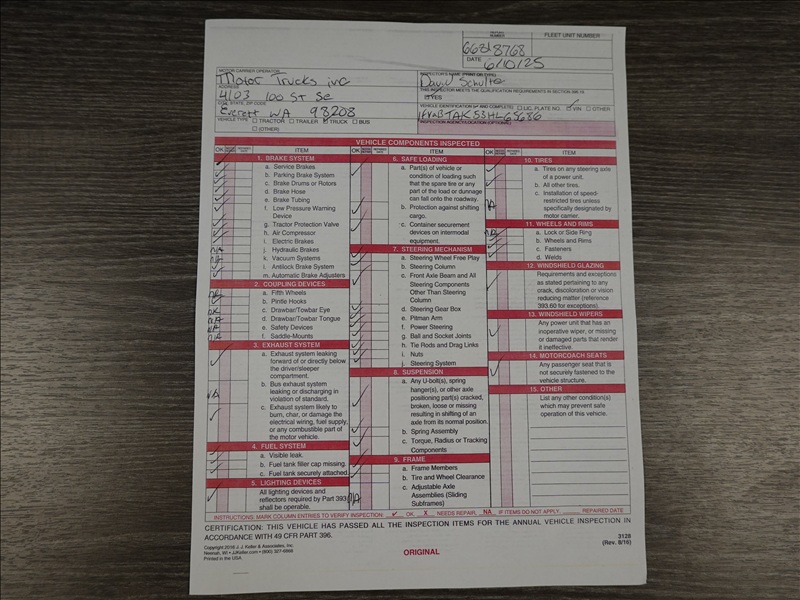 NUMBER
FLEET UNIT NUMBER
DATE 6/10/25
MOTOR CARRIER OPERATOR
Motor Trucks inc
ADDRESS
4103 100 St Se
CITY, STATE, ZIP CODE
Everett WA 98208
VEHICLE TYPE TRACTOR TRAILER TRUCK BUS
(OTHER)
INSPECTOR'S NAME (PRINT OR TYPE)
David
THIS INSPECTOR MEETS THE QUALIFICATION REQUIREMENTS IN SECTION 396.19.
YES
VEHICLE IDENTIFICATION (✓ AND COMPLETE) LIC. PLATE NO. ✓ VIN OTHER
INSPECTION AGENCY/LOCATION (OPTIONAL)
VEHICLE COMPONENTS INSPECTED
OK ITEM
1. BRAKE SYSTEM
a. Service Brakes
b. Parking Brake System
c. Brake Drums or Rotors
d. Brake Hose
e. Brake Tubing
f. Low Pressure Warning
Device
g. Tractor Protection Valve
h. Air Compressor
i. Electric Brakes
j. Hydraulic Brakes
k. Vacuum Systems
l. Antilock Brake System
m. Automatic Brake Adjusters
2. COUPLING DEVICES
a. Fifth Wheels
b. Pintle Hooks
c. Drawbar/Towbar Eye
d. Drawbar/Towbar Tongue
e. Safety Devices
f. Saddle-Mounts
3. EXHAUST SYSTEM
a. Exhaust system leaking
forward of or directly below
the driver/sleeper
compartment.
b. Bus exhaust system
leaking or discharging in
violation of standard.
c. Exhaust system likely to
burn, char, or damage the
electrical wiring, fuel supply,
or any combustible part of
the motor vehicle.
4. FUEL SYSTEM
a. Visible leak.
b. Fuel tank filler cap missing.
c. Fuel tank securely attached.
5. LIGHTING DEVICES
All lighting devices and
reflectors required by Part 393
shall be operable.
OK ITEM
6. SAFE LOADING
a. Part(s) of vehicle or
condition of loading such
that the spare tire or any
part of the load or dunnage
can fall onto the roadway.
b. Protection against shifting
cargo.
c. Container securement
devices on intermodal
equipment.
7. STEERING MECHANISM
a. Steering Wheel Free Play
b. Steering Column
c. Front Axle Beam and All
Steering Components
Other Than Steering
Column
d. Steering Gear Box
e. Pitman Arm
f. Power Steering
g. Ball and Socket Joints
h. Tie Rods and Drag Links
i. Nuts
j. Steering System
8. SUSPENSION
a. Any U-bolt(s), spring
hanger(s), or other axle
positioning part(s) cracked,
broken, loose or missing
resulting in shifting of an
axle from its normal position.
b. Spring Assembly
c. Torque, Radius or Tracking
Components
9. FRAME
a. Frame Members
b. Tire and Wheel Clearance
NA c. Adjustable Axle
Assemblies (Sliding
Subframes)
OK ITEM
10. TIRES
a. Tires on any steering axle
of a power unit.
b. All other tires.
NA c. Installation of speed-
restricted tires unless
specifically designated by
motor carrier.
11. WHEELS AND RIMS
a. Lock or Side Ring
b. Wheels and Rims
c. Fasteners
d. Welds
12. WINDSHIELD GLAZING
Requirements and exceptions
as stated pertaining to any
crack, discoloration or vision
reducing matter (reference
393.60 for exceptions).
13. WINDSHIELD WIPERS
Any power unit that has an
inoperative wiper, or missing
or damaged parts that render
it ineffective.
14. MOTORCOACH SEATS
Any passenger seat that is
not securely fastened to the
vehicle structure.
15. OTHER
List any other condition(s)
which may prevent safe
operation of this vehicle.
INSTRUCTIONS: MARK COLUMN ENTRIES TO VERIFY INSPECTION: ✓ OK X NEEDS REPAIR NA IF ITEMS DO NOT APPLY REPAIRED DATE
CERTIFICATION: THIS VEHICLE HAS PASSED ALL THE INSPECTION ITEMS FOR THE ANNUAL VEHICLE INSPECTION IN
ACCORDANCE WITH 49 CFR PART 396.
Copyright 2016 J. J. Keller & Associates, Inc.
Neenah, WI • JJKeller.com • (800) 327-6868
Printed in the USA
ORIGINAL
3128
(Rev. 8/16)